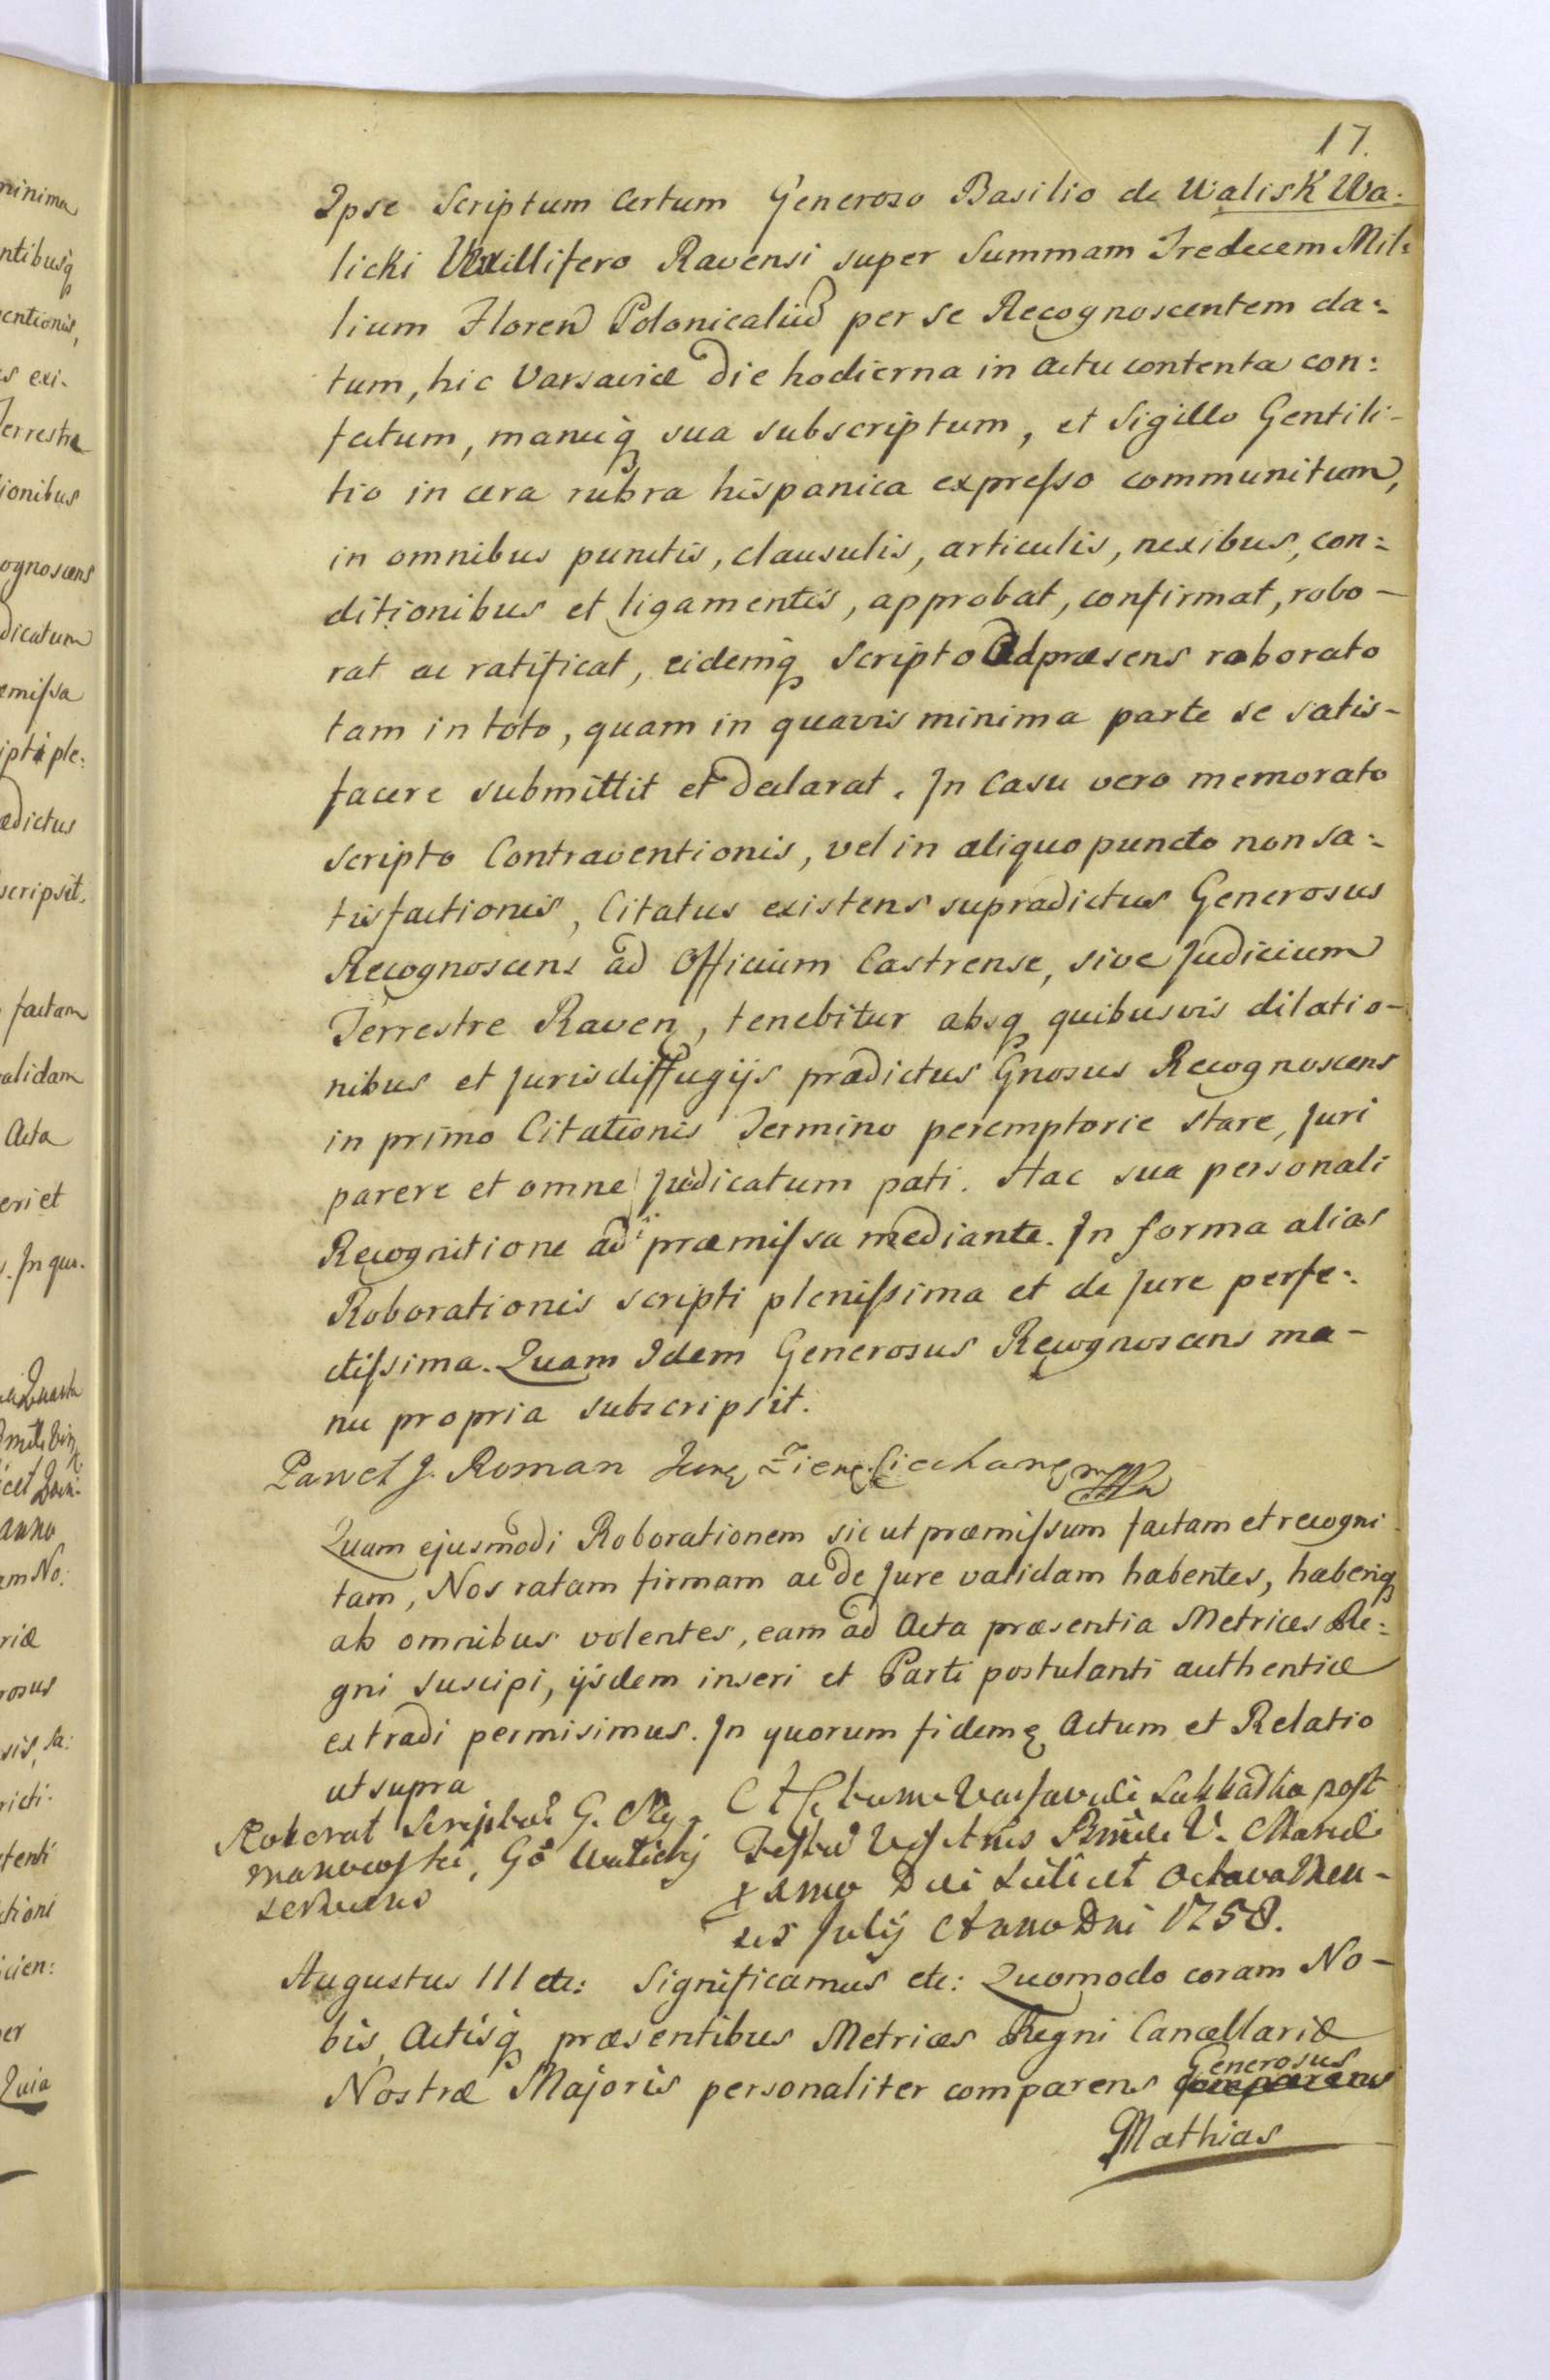 17.
Ipse Scriptum Certum Generoso Basilio de Walisk Wa:
licki Vexillifero Ravensi super Summam Tredecem Mil:
lium Floren Polonicaliu per se Recognoscentem da:
tum, hic Varsaviæ Die hodierna in Actu contenta con:
fectum, manuq sua subscriptum, et Sigillo Gentili-
tio in cera rubra hispanica expresso communitum,
in omnibus punctis, clausulis, articulis, nexibus, con:
ditionibus et ligamentis, approbat, confirmat, robo-
rat ac ratificat, eidemq Scripto Ad præsens roborato
tam in toto, quam in quavis minima parte se satis-
facere submittit et declarat. In Casu vero memorato
scripto Contraventionis, vel in aliquo puncto non sa:
tisfactionis, Citatus existens supradictus Generosus
Recognoscens ad Officium Castrense, sive Judicium
Terrestre Raven, tenebitur absq quibusvis dilatio-
nibus et Juris diffugijs prædictus Gnosus Recognoscens
in primo Citationis Termino peremptorie stare, Juri
parere et omne Judicatum pati. Hac sua personali
Recognitione ad præmissa mediante. In forma alias
Roborationis scripti plenissima et de Jure perfe:
ctissima. Quam Idem Generosus Recognoscens ma-
nu propria subscripsit.
Paweł J. Roman
Quam ejusmodi Roborationem sic ut præmissum factam et recogni
tam, Nos ratam firmam ac de Jure validam habentes, haberiq
ab omnibus volentes, eam ad Acta præsentia Metrices Re:
gni suscipi, ijsdem inseri et Parti postulanti authentice
extradi permisimus. In quorum fidem Actum et Relatio
ut supra
Roborat Scriptum G.
Go Walicki
Actum Varsaviæ Sabbatho post
Festum Visitnis V. Mariæ
proximo Die Scilicet Octava Men-
sis July Anno Dni 1758.
Augustus III etc: Significamus etc: Quomodo coram No-
bis, Actisq præsentibus Metrices Regni Cancellariæ
Nostræ Majoris personaliter comparens Generosus comparens
Mathias
minima
ntibusq
entionis,
s exi-
Terrestre
ionibus
ognoscens
dicatum
emissa
ipti ple:
ædictus
scripsit.
factam
validam
Acta
eri et
. In quo-
Quarta
anno
am No:
riæ
rosus
sis, Sa:
ricti-
tenti
tioni
cien:
er
Quia